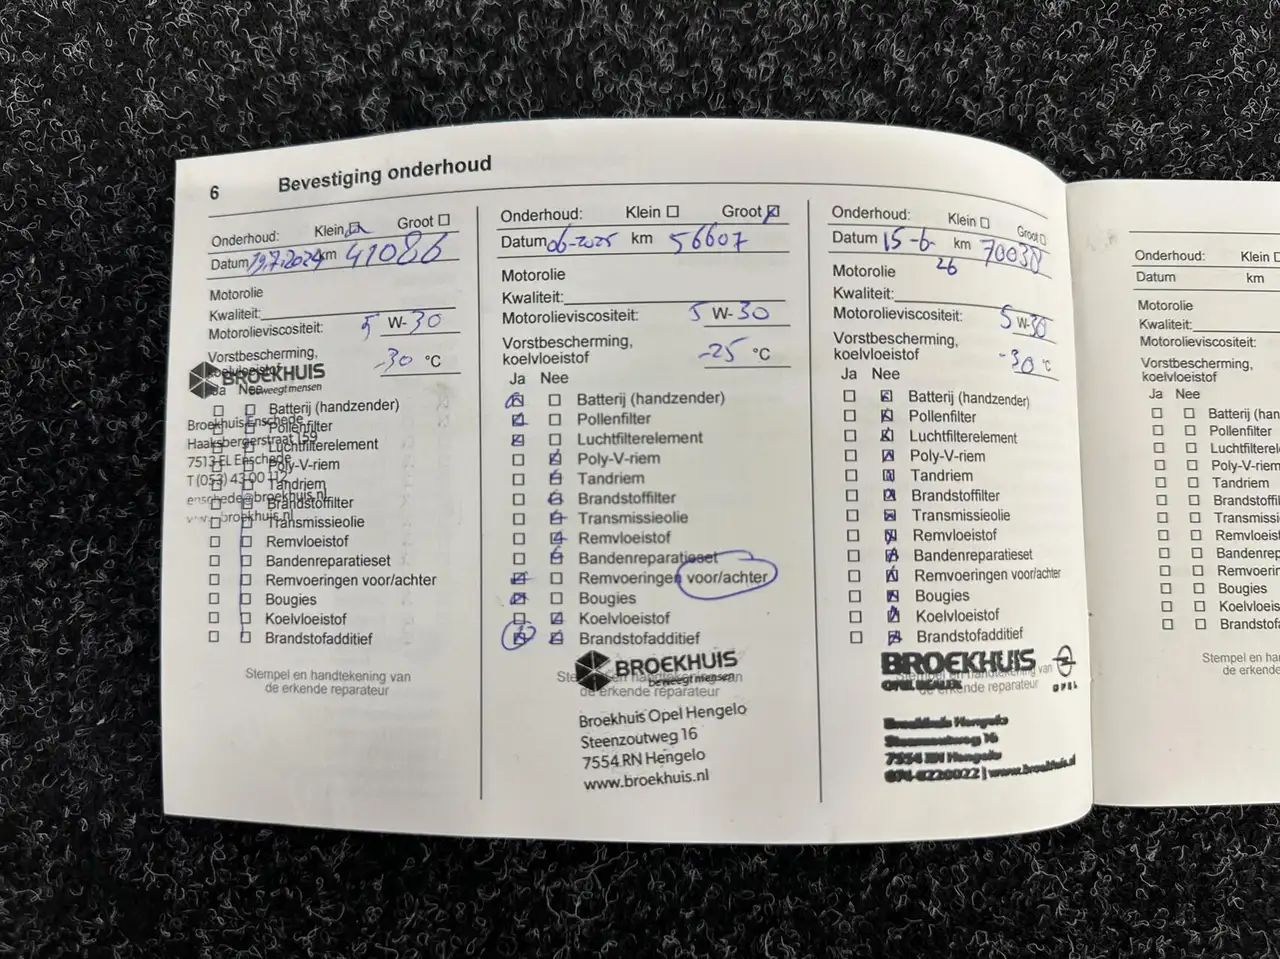 6 Bevestiging onderhoud
Onderhoud: Klein Groot
Datum 19.7.2024 km 41086
Motorolie
Kwaliteit:
Motorolieviscositeit: 5 W-30
Vorstbescherming,
koelvloeistof -30 °C
BROEKHUIS
beweegt mensen
Ja Nee
Broekhuis Enschede
Haaksbergerstraat 159
7513 EL Enschede
T (053) 43 00 112
enschede@broekhuis.nl
www.broekhuis.nl
Batterij (handzender)
Pollenfilter
Luchtfilterelement
Poly-V-riem
Tandriem
Brandstoffilter
Transmissieolie
Remvloeistof
Bandenreparatieset
Remvoeringen voor/achter
Bougies
Koelvloeistof
Brandstofadditief
Stempel en handtekening van
de erkende reparateur
Onderhoud: Klein Groot
Datum 06-2025 km 56607
Motorolie
Kwaliteit:
Motorolieviscositeit: 5 W-30
Vorstbescherming,
koelvloeistof -25 °C
Ja Nee
Batterij (handzender)
Pollenfilter
Luchtfilterelement
Poly-V-riem
Tandriem
Brandstoffilter
Transmissieolie
Remvloeistof
Bandenreparatieset
Remvoeringen voor/achter
Bougies
Koelvloeistof
Brandstofadditief
BROEKHUIS
beweegt mensen
Stempel en handtekening van
de erkende reparateur
Broekhuis Opel Hengelo
Steenzoutweg 16
7554 RN Hengelo
www.broekhuis.nl
Onderhoud: Klein Groot
Datum 15-6-26 km 70038
Motorolie
Kwaliteit:
Motorolieviscositeit: 5 W-30
Vorstbescherming,
koelvloeistof -30 °C
Ja Nee
Batterij (handzender)
Pollenfilter
Luchtfilterelement
Poly-V-riem
Tandriem
Brandstoffilter
Transmissieolie
Remvloeistof
Bandenreparatieset
Remvoeringen voor/achter
Bougies
Koelvloeistof
Brandstofadditief
BROEKHUIS
OPEL DEALER OPEL
Stempel en handtekening van
de erkende reparateur
Broekhuis Hengelo
Steenzoutweg 16
7554 RN Hengelo
074-8220022 | www.broekhuis.nl
Onderhoud: Klein
Datum km
Motorolie
Kwaliteit:
Motorolieviscositeit:
Vorstbescherming,
koelvloeistof
Ja Nee
Batterij (hand
Pollenfilter
Luchtfilterele
Poly-V-riem
Tandriem
Brandstoffi
Transmissie
Remvloeist
Bandenrep
Remvoerin
Bougies
Koelvloeis
Brandstofa
Stempel en han
de erkende